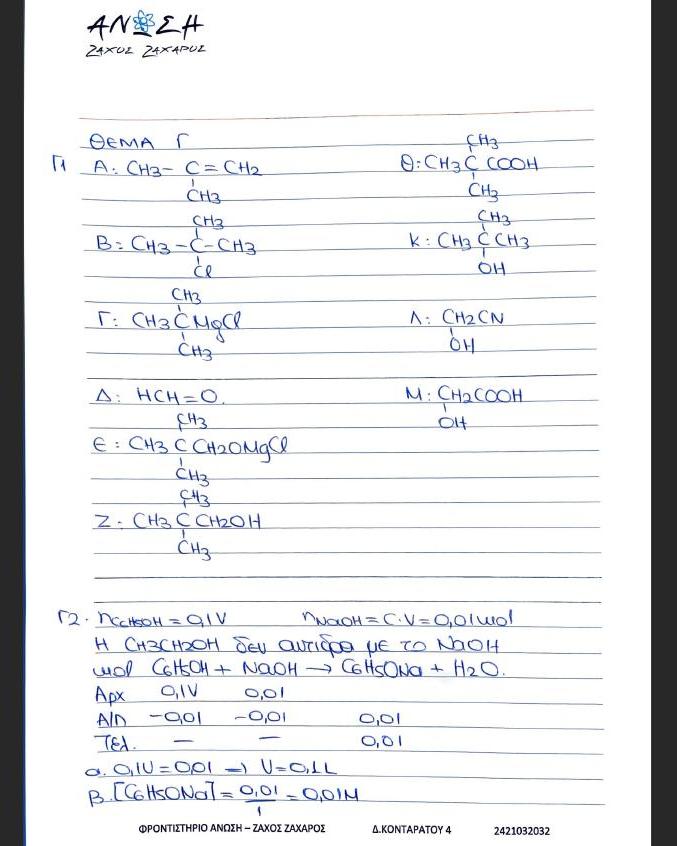 ΑΝΩΣΗ
ΖΑΧΟΣ ΖΑΧΑΡΟΣ
ΘΕΜΑ Γ
Γ1 Α: CH3- C = CH2
CH3
Β: CH3 - C - CH3
CH3
Cl
Γ: CH3 C MgCl
CH3
CH3
Δ: HCH=O.
Ε: CH3 C CH2OMgCl
CH3
CH3
Ζ: CH3 C CH2OH
CH3
CH3
Θ: CH3 C COOH
CH3
CH3
Κ: CH3 C CH3
CH3
OH
Λ: CH2CN
OH
Μ: CH2COOH
OH
Γ2. nC6H5OH = 0,1V nNaOH = C.V = 0,01 mol
Η CH3CH2OH δεν αντιδρα με το NaOH
mol C6H5OH + NaOH → C6H5ONa + H2O.
Αρχ 0,1V 0,01
Α/Π -0,01 -0,01 0,01
Τελ. — — 0,01
α. 0,1V = 0,01 → V = 0,1L
β. [C6H5ONa] = 0,01/1 = 0,01M
ΦΡΟΝΤΙΣΤΗΡΙΟ ΑΝΩΣΗ – ΖΑΧΟΣ ΖΑΧΑΡΟΣ Δ.ΚΟΝΤΑΡΑΤΟΥ 4 2421032032